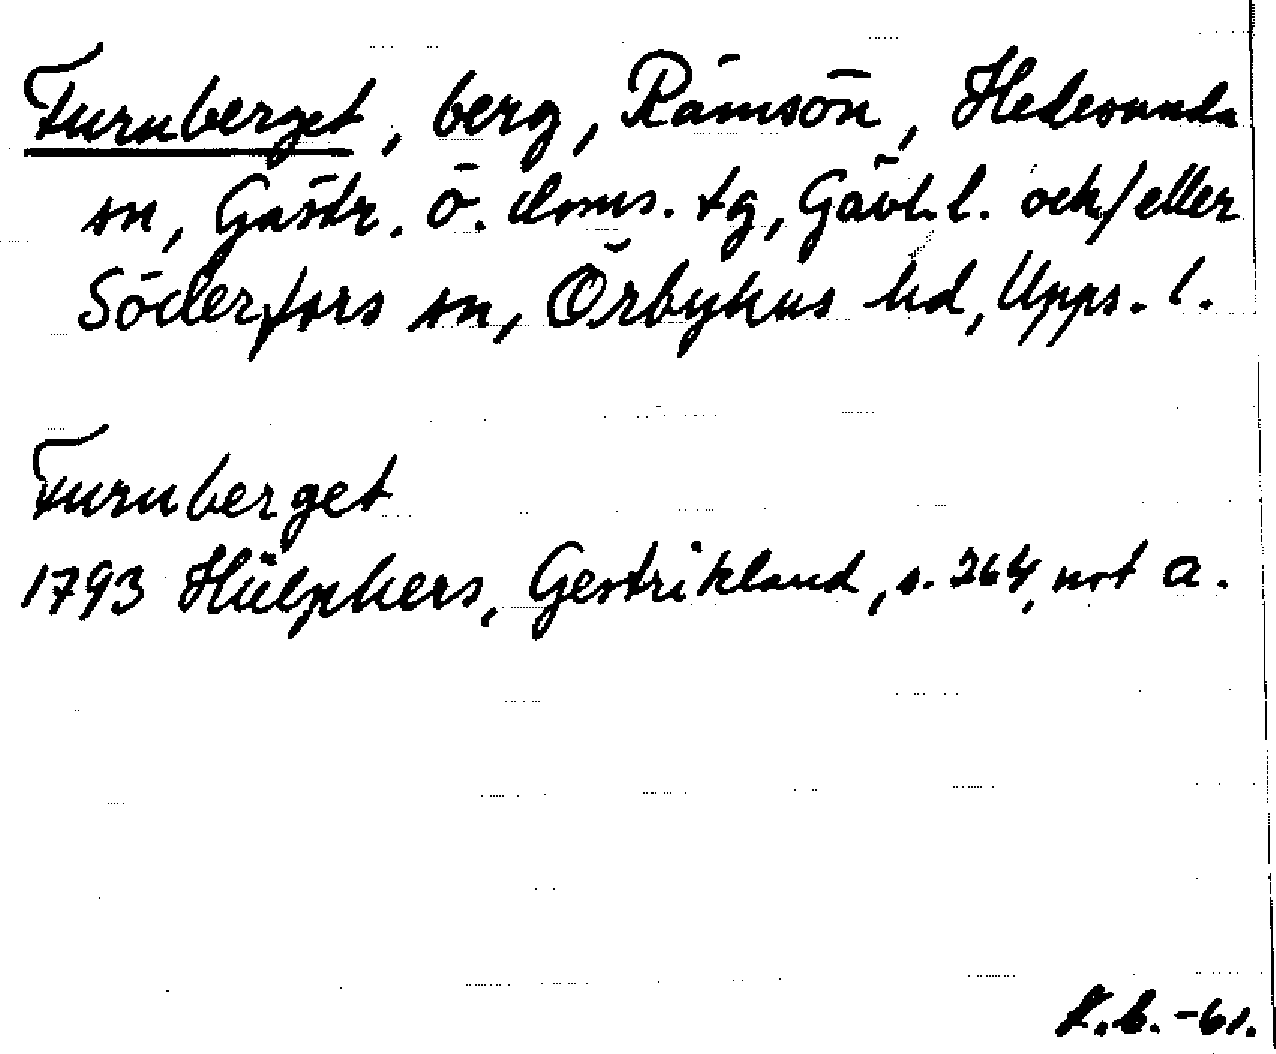 Furuberget, berg, Rämsön, Hedesunda
sn, Gästr. ö. doms. tg, Gävl. l. och/eller
Söderfors sn, Örbyhus hd, Upps. l.
Furuberget
1793 Hülphers, Gestrikland, s. 264, not a.
L.b. -61.